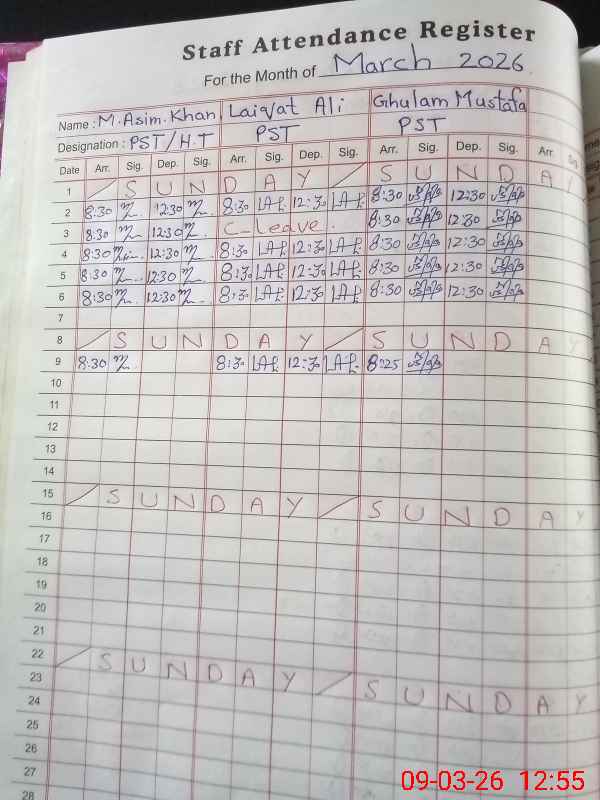 Staff Attendance Register
For the Month of March 2026.
Name : M. Asim. Khan Laiqat Ali Ghulam Mustafa
Designation : PST/H.T PST PST
Date Arr. Sig. Dep. Sig. Arr. Sig. Dep. Sig. Arr. Sig. Dep. Sig. Arr. Sig.
1 S U N D A Y S U N D A Y
2 8:30 12:30 8:30 LAP. 12:30 LAP. 8:30 12:30
3 8:30 12:30 C_Leave. 8:30 12:30
4 8:30 12:30 8:30 LAP. 12:30 LAP. 8:30 12:30
5 8:30 12:30 8:30 LAP. 12:30 LAP. 8:30 12:30
6 8:30 12:30 8:30 LAP. 12:30 LAP. 8:30 12:30
7
8 S U N D A Y S U N D A Y
9 8:30 8:30 LAP. 12:30 LAP. 8:25
10
11
12
13
14
15 S U N D A Y S U N D A Y
16
17
18
19
20
21
22 S U N D A Y S U N D A Y
23
24
25
26
27
28
09-03-26 12:55